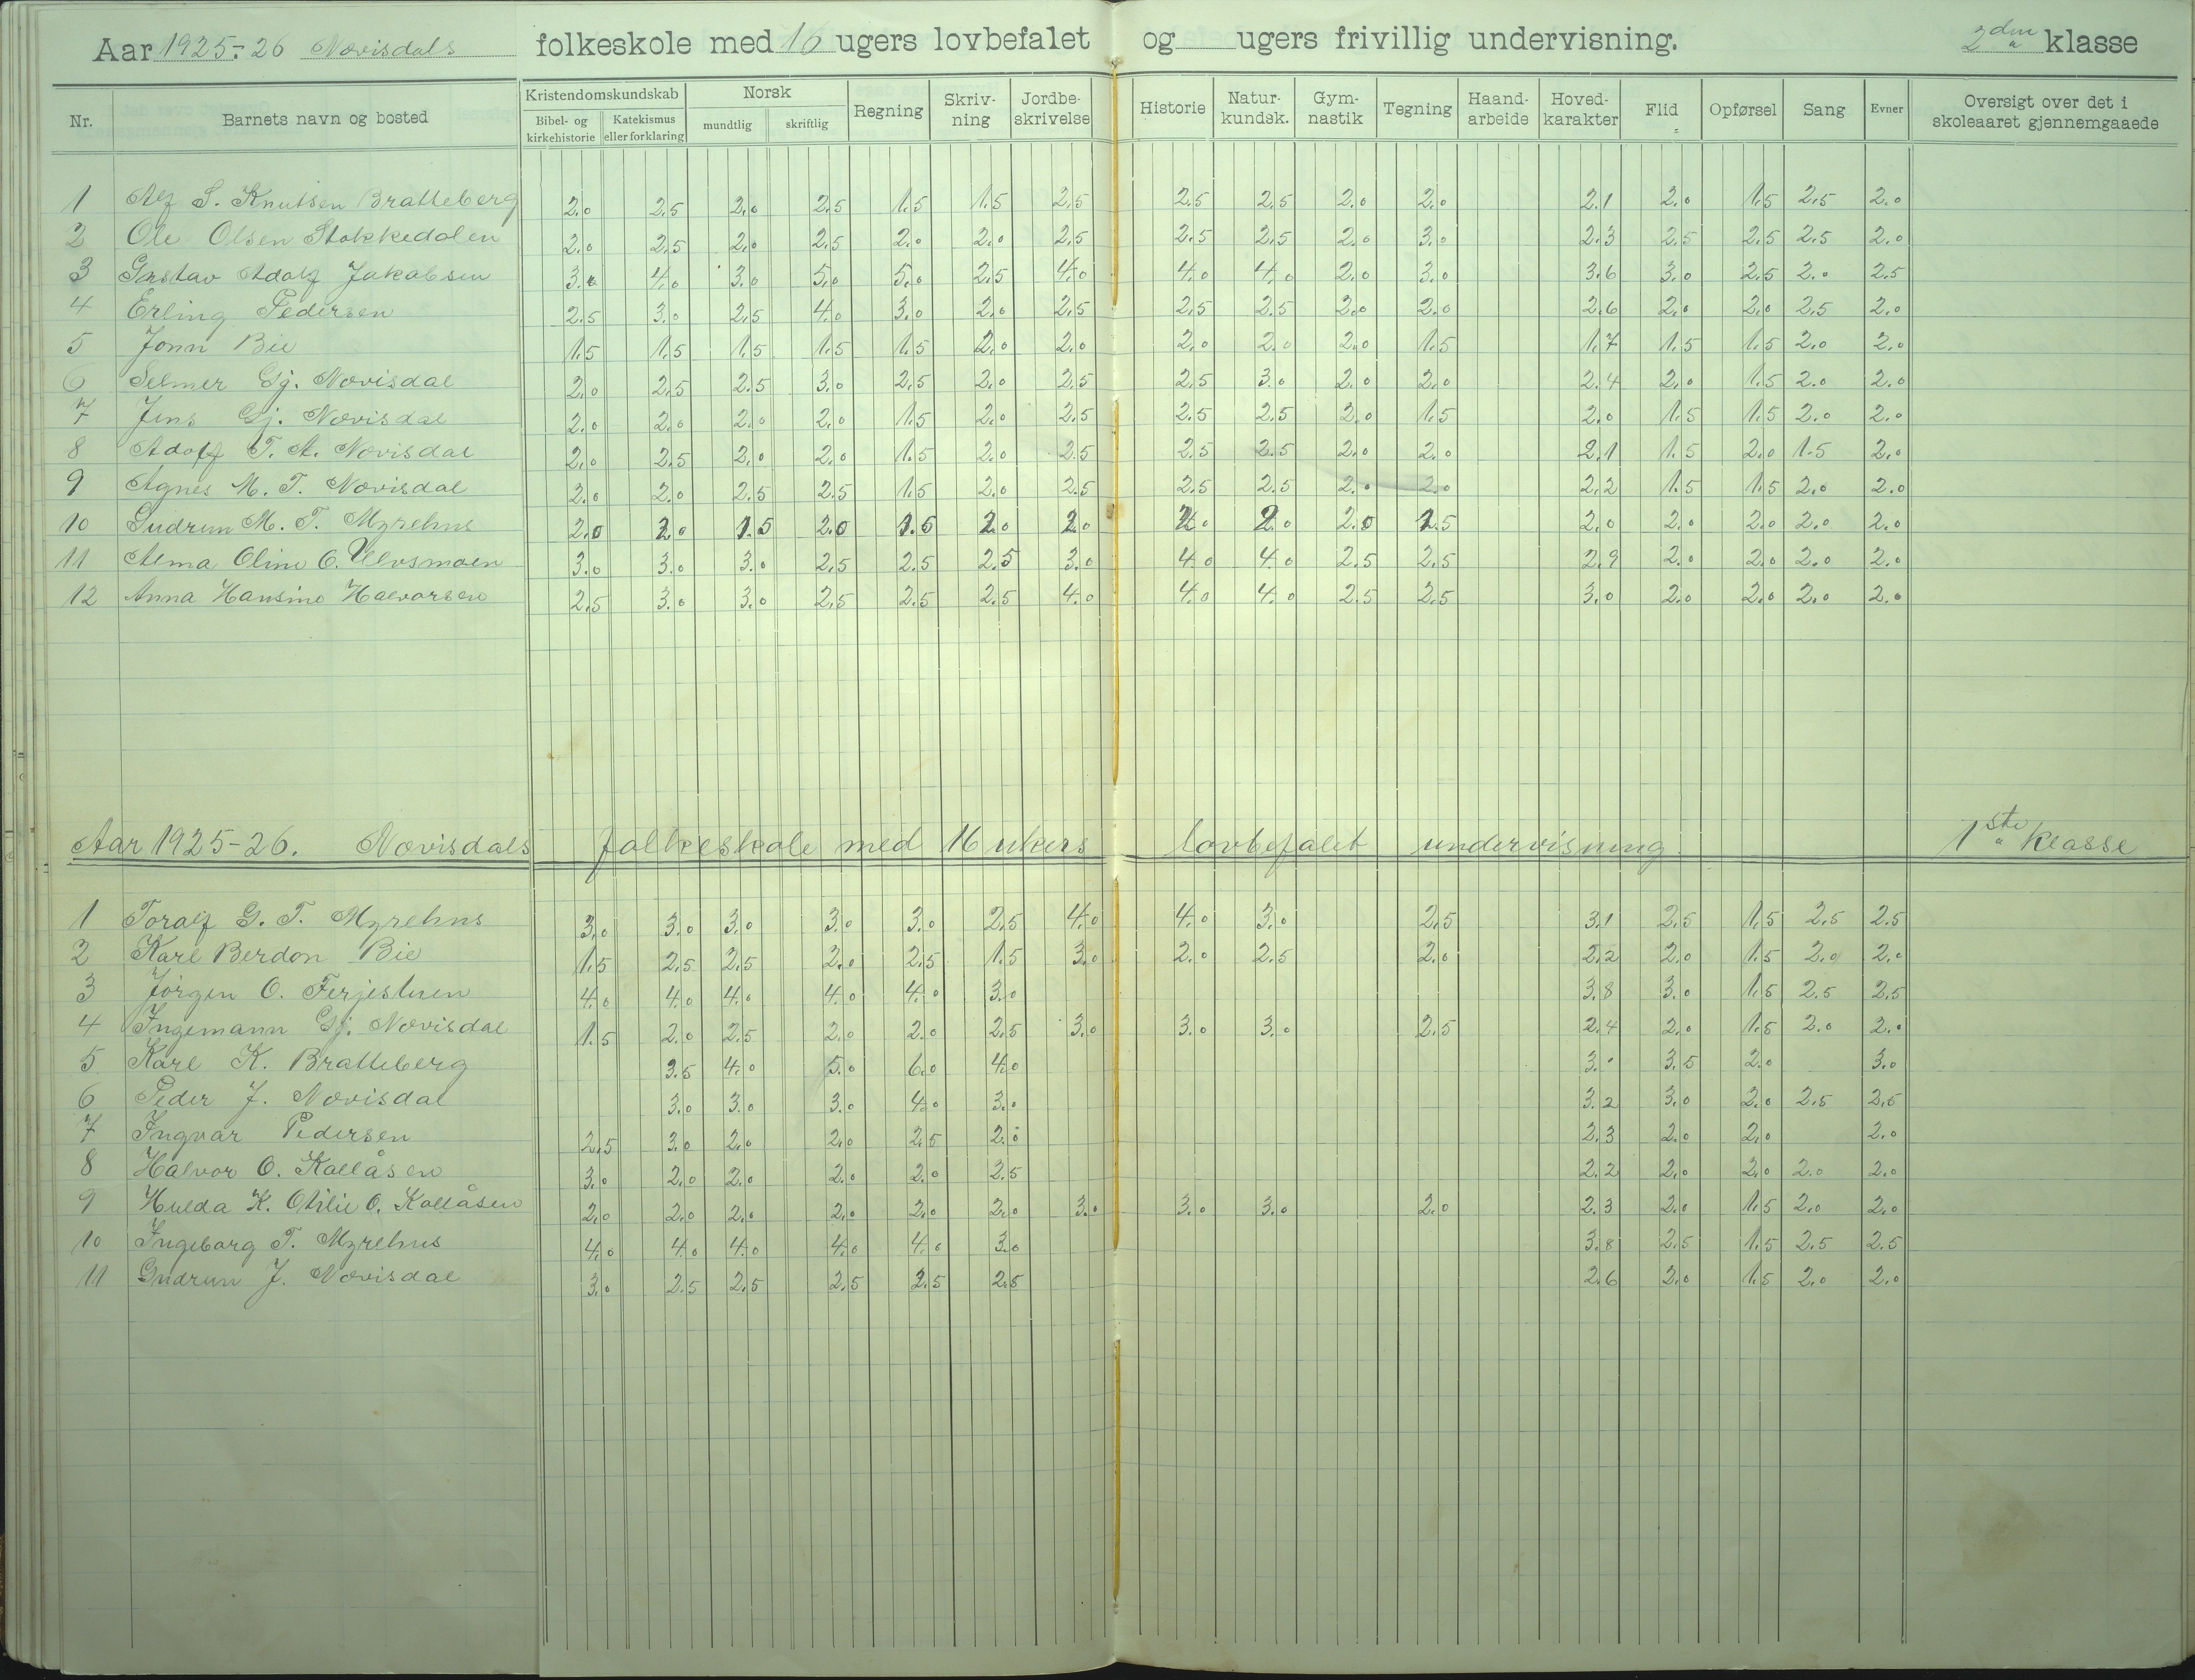 Aar 1925-26 Novisdals folkeskole med 16 ugers lovbefalet og ugers frivillig undervisning. 2den klasse
Nr. Barnets navn og bosted Kristendomskundskab Bibel- og kirkehistorie Katekismus eller forklaring Norsk mundtlig skriftlig Regning Skriv-ning Jordbe-skrivelse Historie Natur-kundsk. Gym-nastik Tegning Haand-arbeide Hoved-karakter Flid Opførsel Sang Evner Oversigt over det i skoleaaret gjennemgaaede
1 Alf S. Knutsen Bratteberg 2.0 2.5 2.0 2.5 1.5 1.5 2.5 2.5 2.5 2.0 2.0 2.1 2.0 1.5 2.5 2.0
2 Ole Olsen Stokkedalen 2.0 2.5 2.0 2.5 2.0 2.0 2.5 2.5 2.5 2.0 3.0 2.3 2.5 2.5 2.5 2.0
3 Gustav Adolf Jakobsen 3.0 4.0 3.0 5.0 5.0 2.5 4.0 4.0 4.0 2.0 3.0 3.6 3.0 2.5 2.0 2.5
4 Erling Pedersen 2.5 3.0 2.5 4.0 3.0 2.0 2.5 2.5 2.5 2.0 2.0 2.6 2.0 2.0 2.5 2.0
5 Jonn Bie 1.5 1.5 1.5 1.5 1.5 2.0 2.0 2.0 2.0 2.0 1.5 1.7 1.5 1.5 2.0 2.0
6 Selmer Gj. Novisdal 2.0 2.5 2.5 3.0 2.5 2.0 2.5 2.5 3.0 2.0 2.0 2.4 2.0 1.5 2.0 2.0
7 Jens Gj. Novisdal 2.0 2.0 2.0 2.0 1.5 2.0 2.5 2.5 2.5 2.0 1.5 2.0 1.5 1.5 2.0 2.0
8 Adolf T. A. Novisdal 2.0 2.5 2.0 2.0 1.5 2.0 2.5 2.5 2.5 2.0 2.0 2.1 1.5 2.0 1.5 2.0
9 Agnes M. T. Novisdal 2.0 2.0 2.5 2.5 1.5 2.0 2.5 2.5 2.5 2.0 2.0 2.2 1.5 1.5 2.0 2.0
10 Gudrun M. T. Myrehus 2.0 2.0 1.5 2.0 1.5 2.0 2.0 2.0 2.0 2.0 2.5 2.0 2.0 2.0 2.0 2.0
11 Alma Oline O. Ulvsmoen 3.0 3.0 3.0 2.5 2.5 2.5 3.0 4.0 4.0 2.5 2.5 2.9 2.0 2.0 2.0 2.0
12 Anna Hansine Halvorsen 2.5 3.0 3.0 2.5 2.5 2.5 4.0 4.0 4.0 2.5 2.5 3.0 2.0 2.0 2.0 2.0
Aar 1925-26. Novisdals folkeskole med 16 ukers lovbefalet undervisning 1ste klasse
1 Toralf G. T. Myrehus 3.0 3.0 3.0 3.0 3.0 2.5 4.0 4.0 3.0 2.5 3.1 2.5 1.5 2.5 2.5
2 Karl Berdon Bie 1.5 2.5 2.5 2.0 2.5 1.5 3.0 2.0 2.5 2.0 2.2 2.0 1.5 2.0 2.0
3 Jörgen O. Ferjestuen 4.0 4.0 4.0 4.0 4.0 3.0 3.8 3.0 1.5 2.5 2.5
4 Ingemann Gj. Novisdal 1.5 2.0 2.5 2.0 2.0 2.5 3.0 3.0 3.0 2.5 2.4 2.0 1.5 2.0 2.0
5 Karl K. Bratteberg 3.5 4.0 5.0 6.0 4.0 3. 3.5 2.0 3.0
6 Peder J. Novisdal 3.0 3.0 3.0 4.0 3.0 3.2 3.0 2.0 2.5 2.5
7 Ingvar Pedersen 2.5 3.0 2.0 2.0 2.5 2.0 2.3 2.0 2.0 2.0
8 Halvor O. Kollåsen 3.0 2.0 2.0 2.0 2.0 2.5 2.2 2.0 2.0 2.0 2.0
9 Hulda K. Otilie O. Kollåsen 2.0 2.0 2.0 2.0 2.0 2.0 3.0 3.0 3.0 2.0 2.3 2.0 1.5 2.0 2.0
10 Ingeborg T. Myrehus 4.0 4.0 4.0 4.0 4.0 3.0 3.8 2.5 1.5 2.5 2.5
11 Gudrun J. Novisdal 3.0 2.5 2.5 2.5 2.5 2.5 2.6 2.0 1.5 2.0 2.0